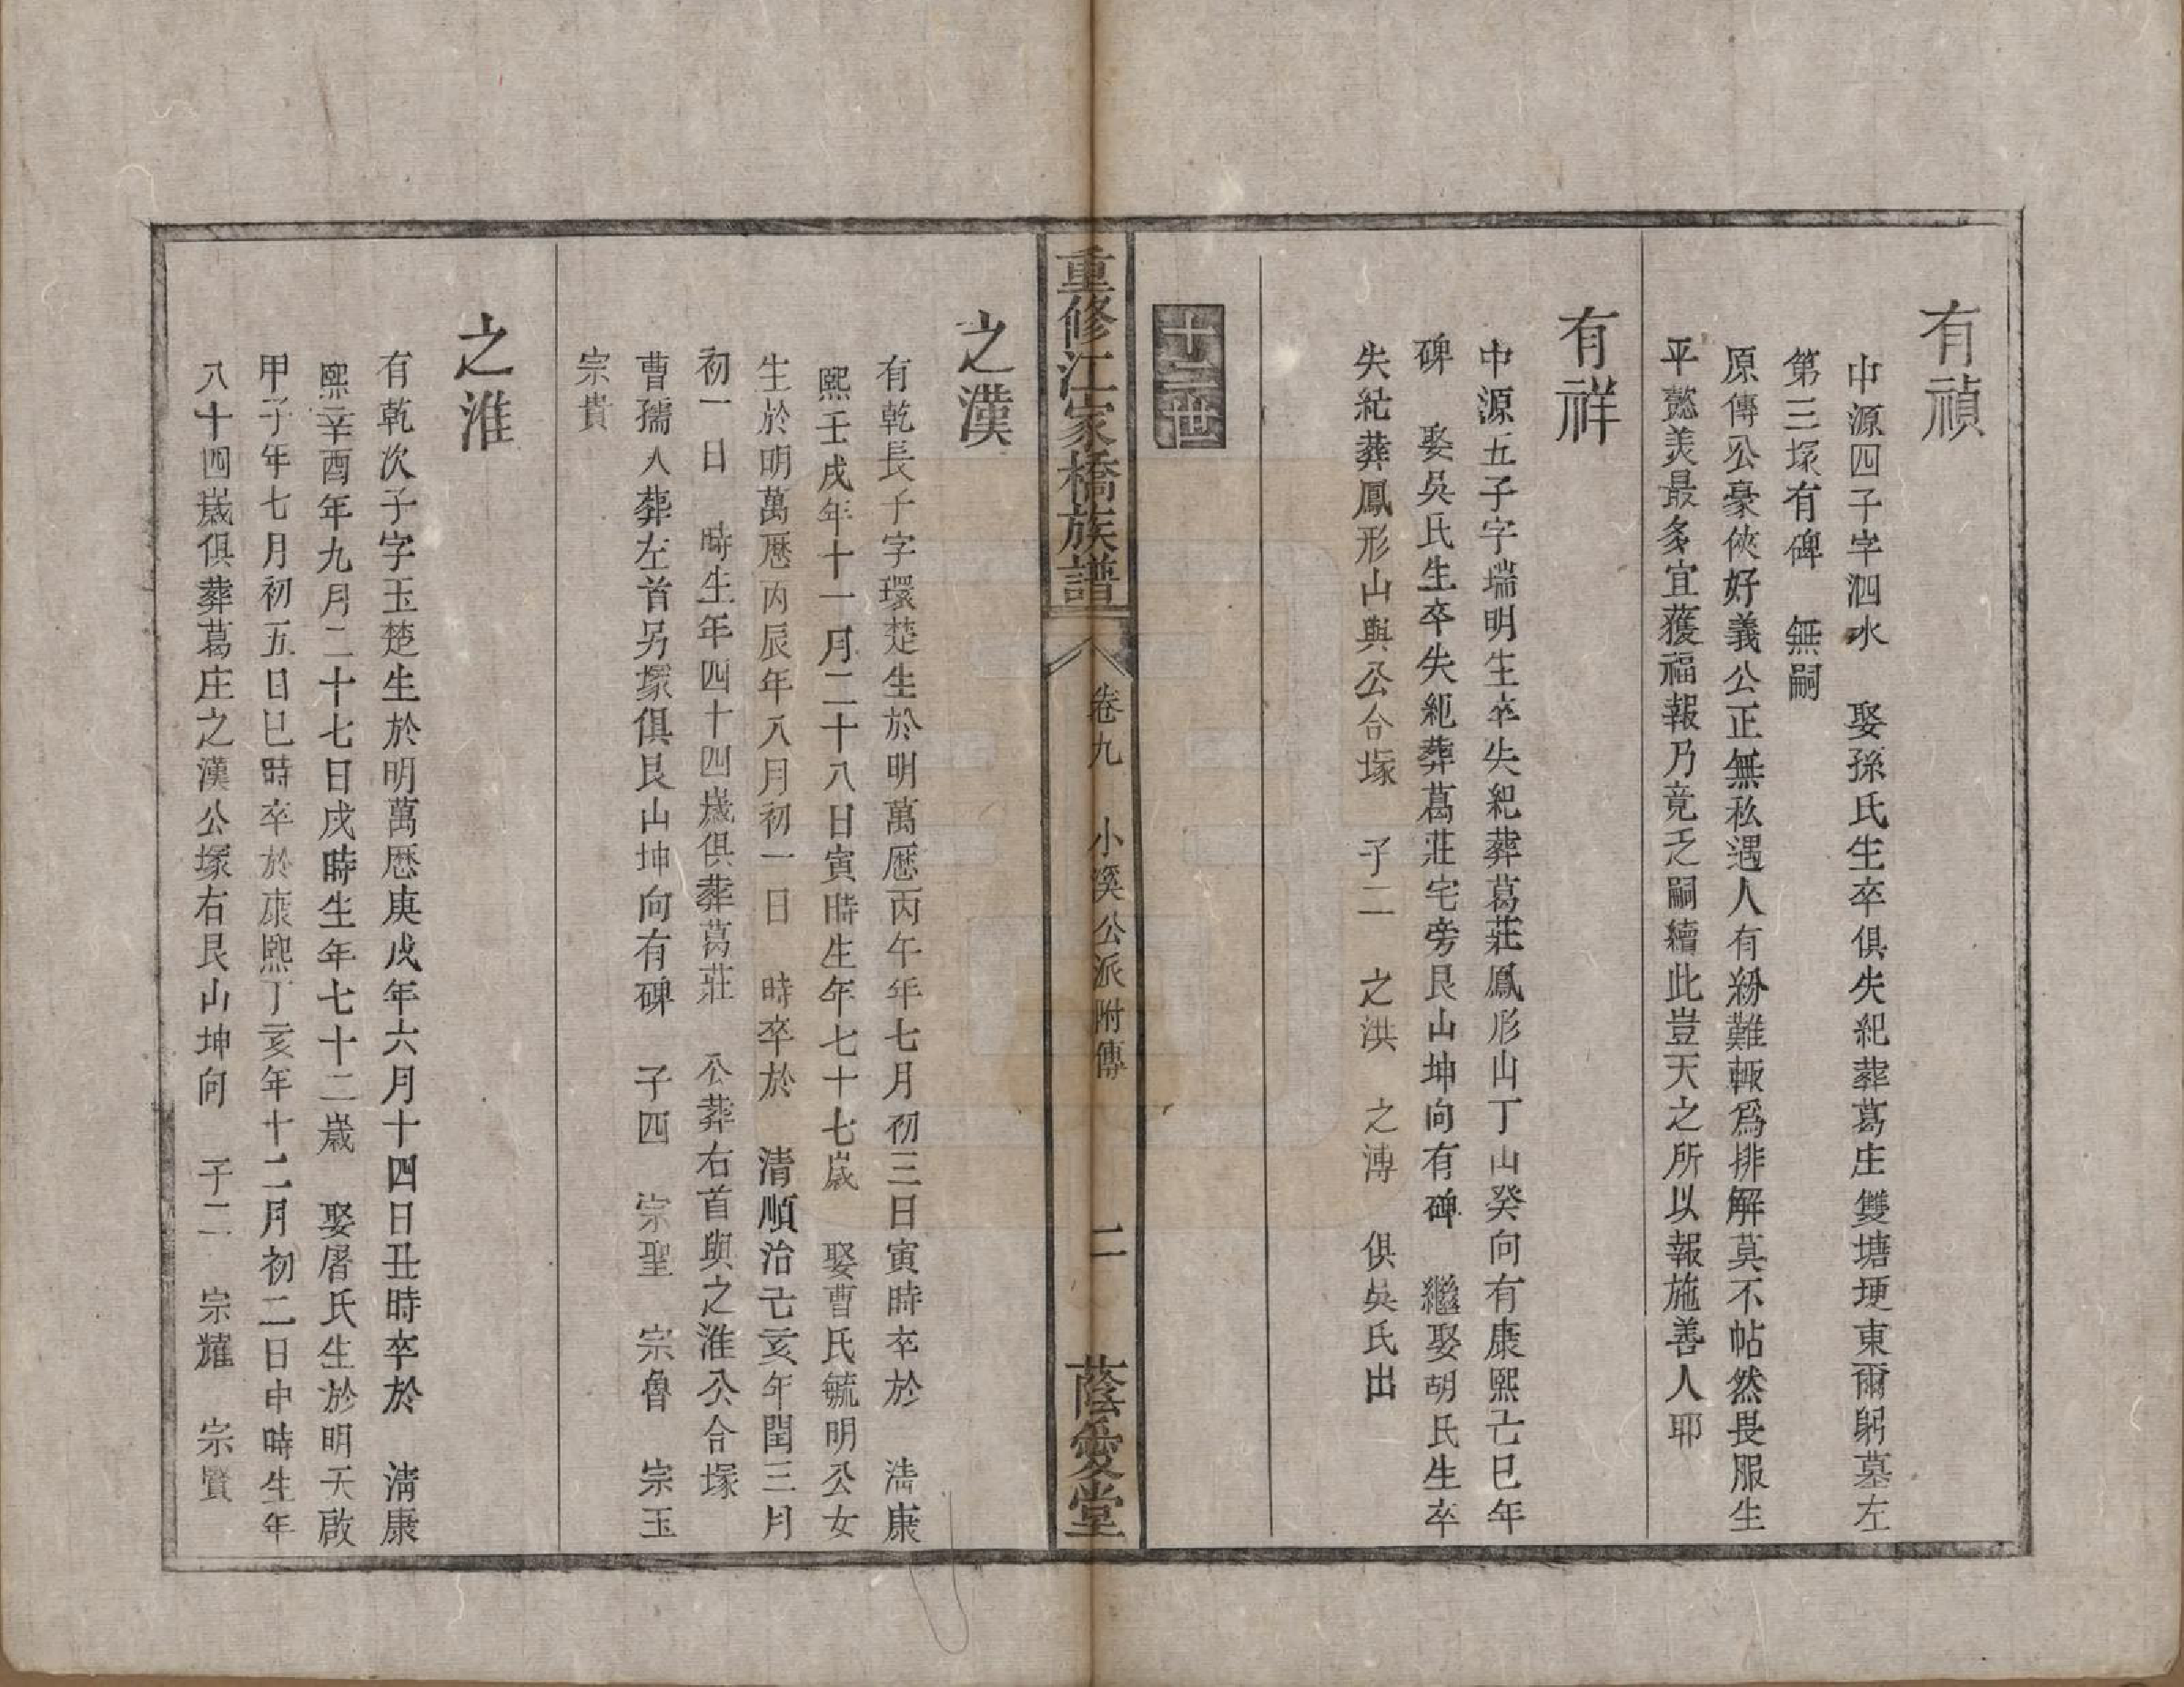 有禎
中源四子字泗水　娶孫氏生卒俱失紀葬葛庄雙塘埂東爾躬墓左
第三塚有碑　無嗣
原傳公豪俠好義公正無私遇人有紛難輙爲排解莫不帖然畏服生
平懿美最多宜獲福報乃竟乏嗣續此豈天之所以報施善人耶
有祥
中源五子字瑞明生卒失紀葬葛莊鳳形山丁山癸向有康熙己巳年
碑　娶吳氏生卒失紀葬葛莊宅旁艮山坤向有碑　繼娶胡氏生卒
失紀葬鳳形山與公合塚　子二　之洪　之溥　俱吳氏出
十二世
重修江家橋族譜　卷九　小溪公派附傳　二　蔭愛堂
之漢
有乾長子字環楚生於明萬厯丙午年七月初三日寅時卒於　清康
熙壬戌年十一月二十八日寅時生年七十七歲　娶曹氏毓明公女
生於明萬厯丙辰年八月初一日　時卒於　清順治己亥年閏三月
初一日　時生年四十四歲俱葬葛莊　公葬右首與之淮公合塚
曹孺人葬左首另塚俱艮山坤向有碑　子四　宗聖　宗魯　宗玉
宗貴
之淮
有乾次子字玉楚生於明萬厯庚戌年六月十四日丑時卒於　清康
熙辛酉年九月二十七日戌時生年七十二歲　娶屠氏生於明天啟
甲子年七月初五日巳時卒於康熙丁亥年十二月初二日申時生年
八十四歲俱葬葛庄之漢公塚右艮山坤向　子二　宗耀　宗賢